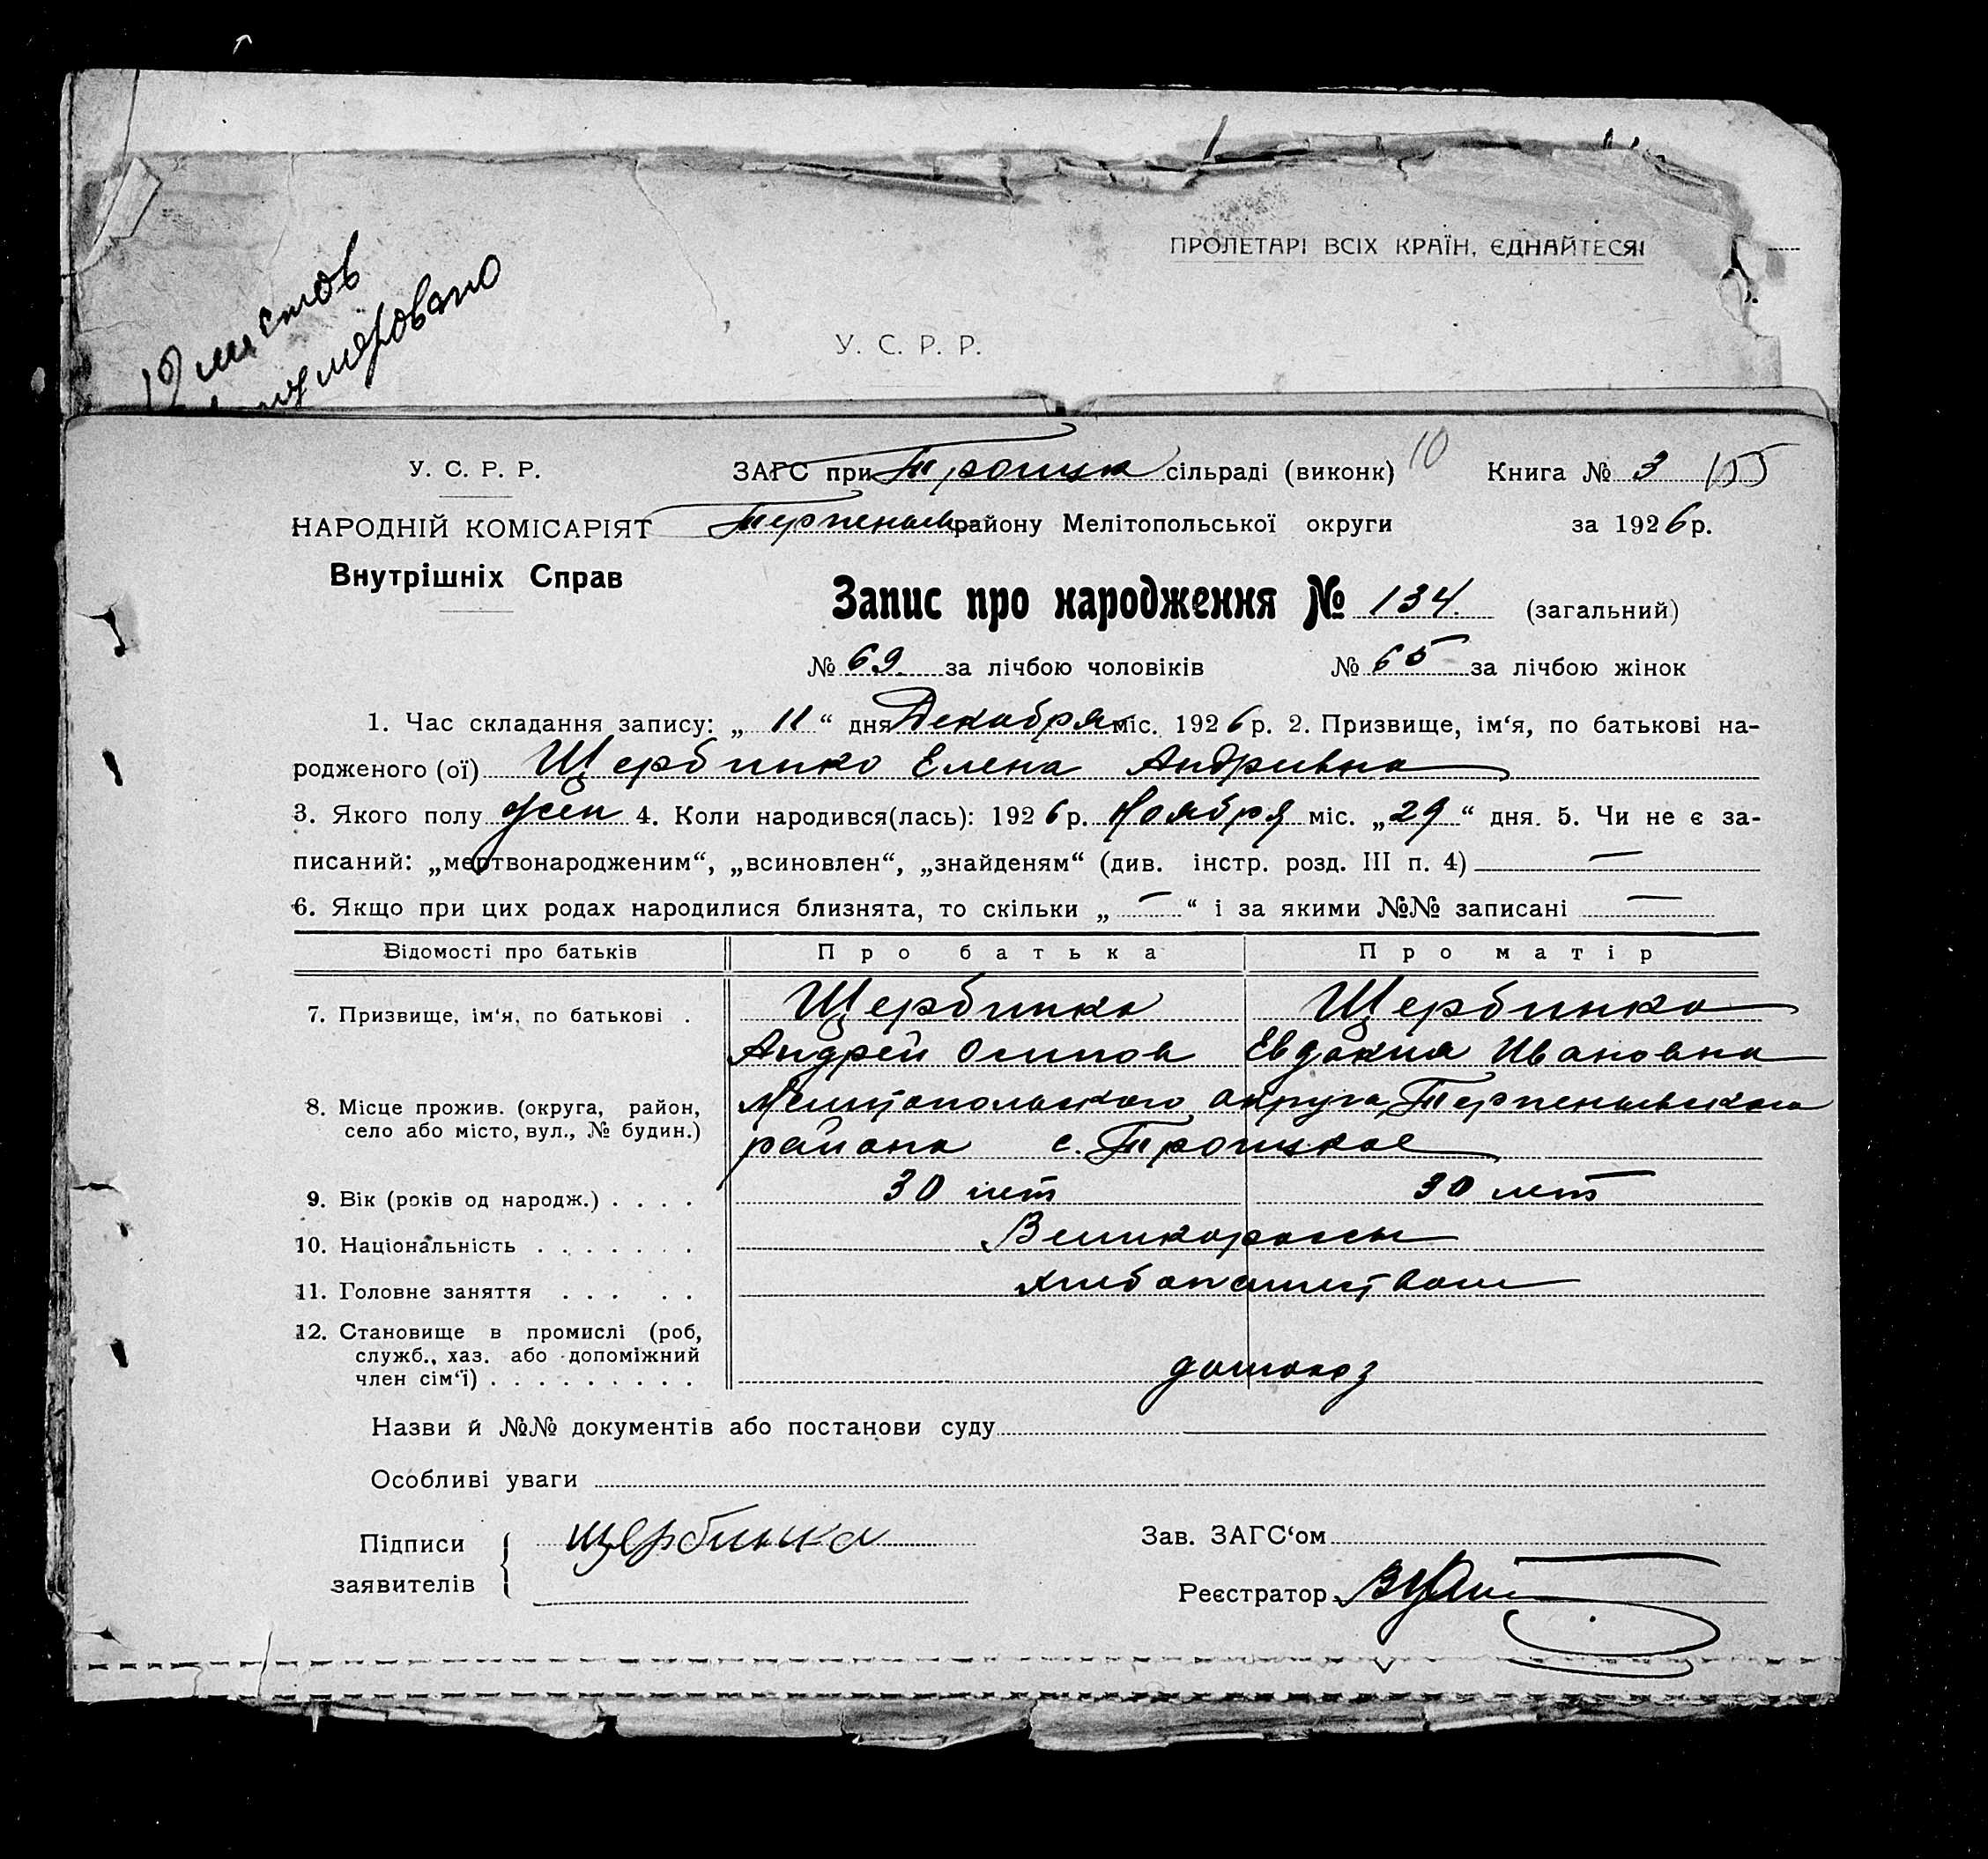 ПРОЛЕТАРІ ВСІХ КРАЇН, ЄДНАЙТЕСЯ!
19 листов
У. С. Р. Р.
У. С. Р. Р.
ЗАГС при Троицк сільраді (виконк) 10 Книга № 3 155
НАРОДНІЙ КОМІСАРІЯТ
Терпеньев району Мелітопольської округи за 1926 р.
Внутрішніх Справ
Запис про народження № 134. (загальний)
№ 69 за лічбою чоловіків № 65 за лічбою жінок
1. Час складання запису: „ 11 “ дня Декабря міс. 1926 р. 2. Призвище, ім‘я, по батькові на-
родженого (ої) Щербинко Елена Андривна
3. Якого полу жен 4. Коли народився(лась): 1926 р. Ноября міс. „29“ дня. 5. Чи не є за-
писаний: „мертвонародженим“, „всиновлен“, „знайденям“ (див. інстр. розд. III п. 4) —
6. Якщо при цих родах народилися близнята, то скільки „ — “ і за якими №№ записані —
Відомості про батьків Про батька Про матір
7. Призвище, ім‘я, по батькові . Щербинко Щербинко
Андрей Осипов Евдокия Ивановна
8. Місце прожив. (округа, район, Мелитопольского округа, Терпеньевского
село або місто, вул., № будин.) района с. Троицкое
9. Вік (років од народж.) . . . . 30 лет 30 лет
10. Національність . . . . . . . Великороссы
11. Головне заняття . . . . .
12. Становище в промислі (роб,
служб., хаз. або допоміжний
член сім‘ї) . . . . . . . . . домохоз
Назви й №№ документів або постанови суду
Особливі уваги
Підписи щербинка Зав. ЗАГС‘ом
заявителів Реєстратор